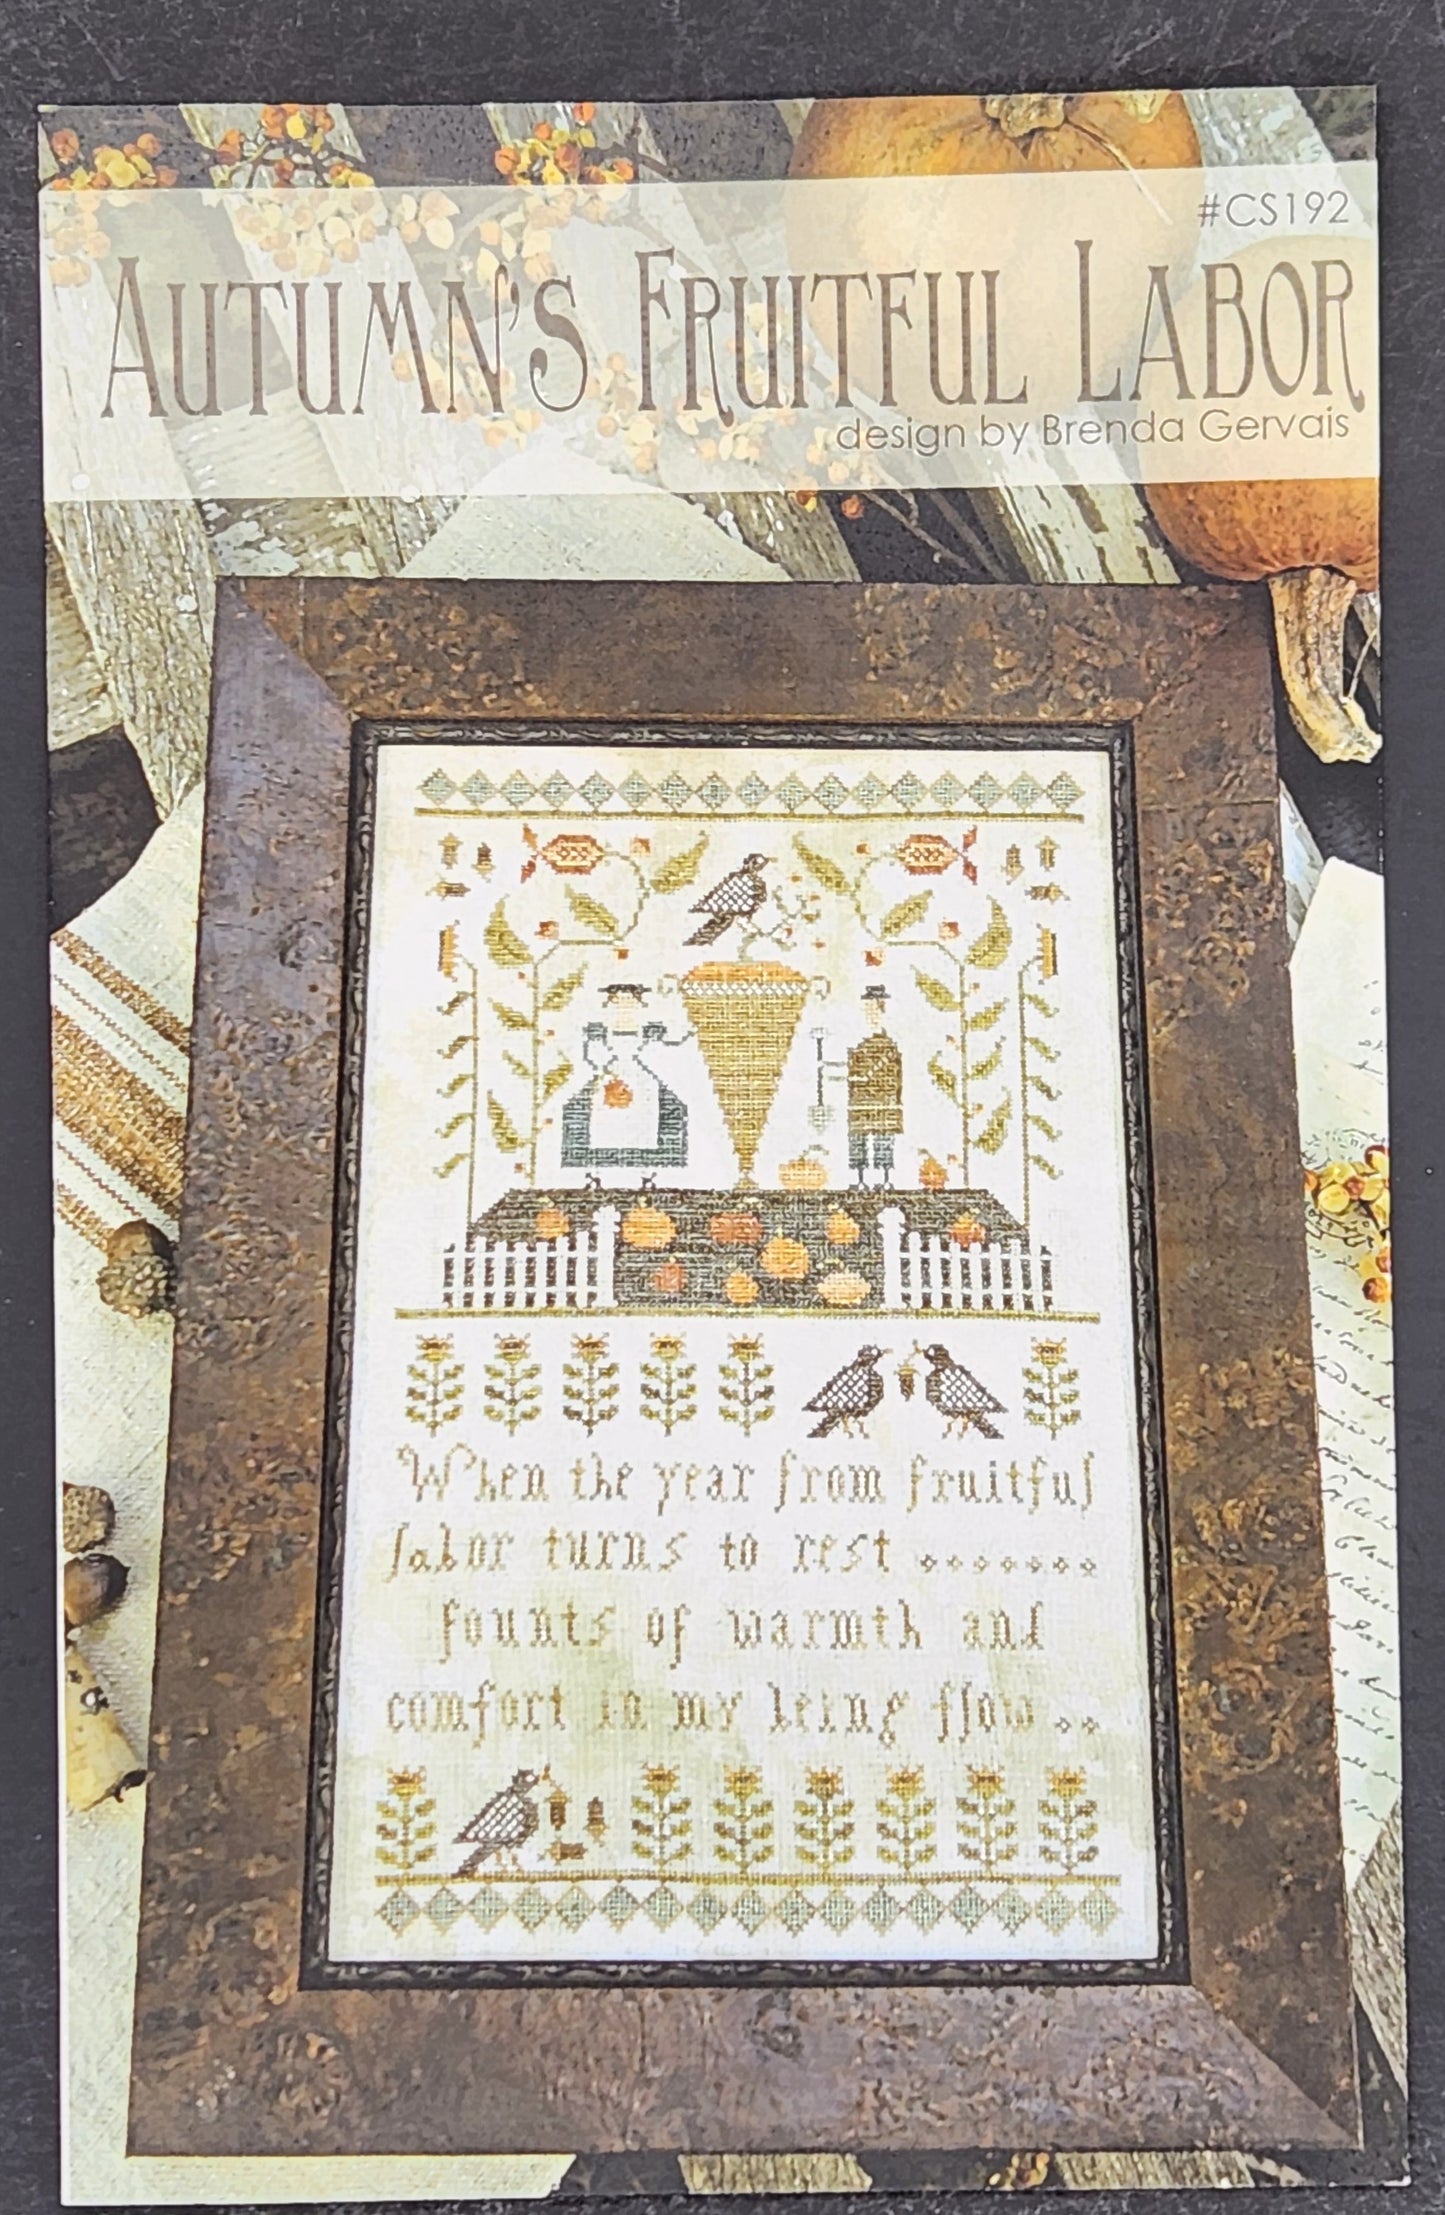 #CS192
AUTUMN'S FRUITFUL LABOR
design by Brenda Gervais
When the year from fruitful
labor turns to rest .......
founts of warmth and
comfort in my being flow ..